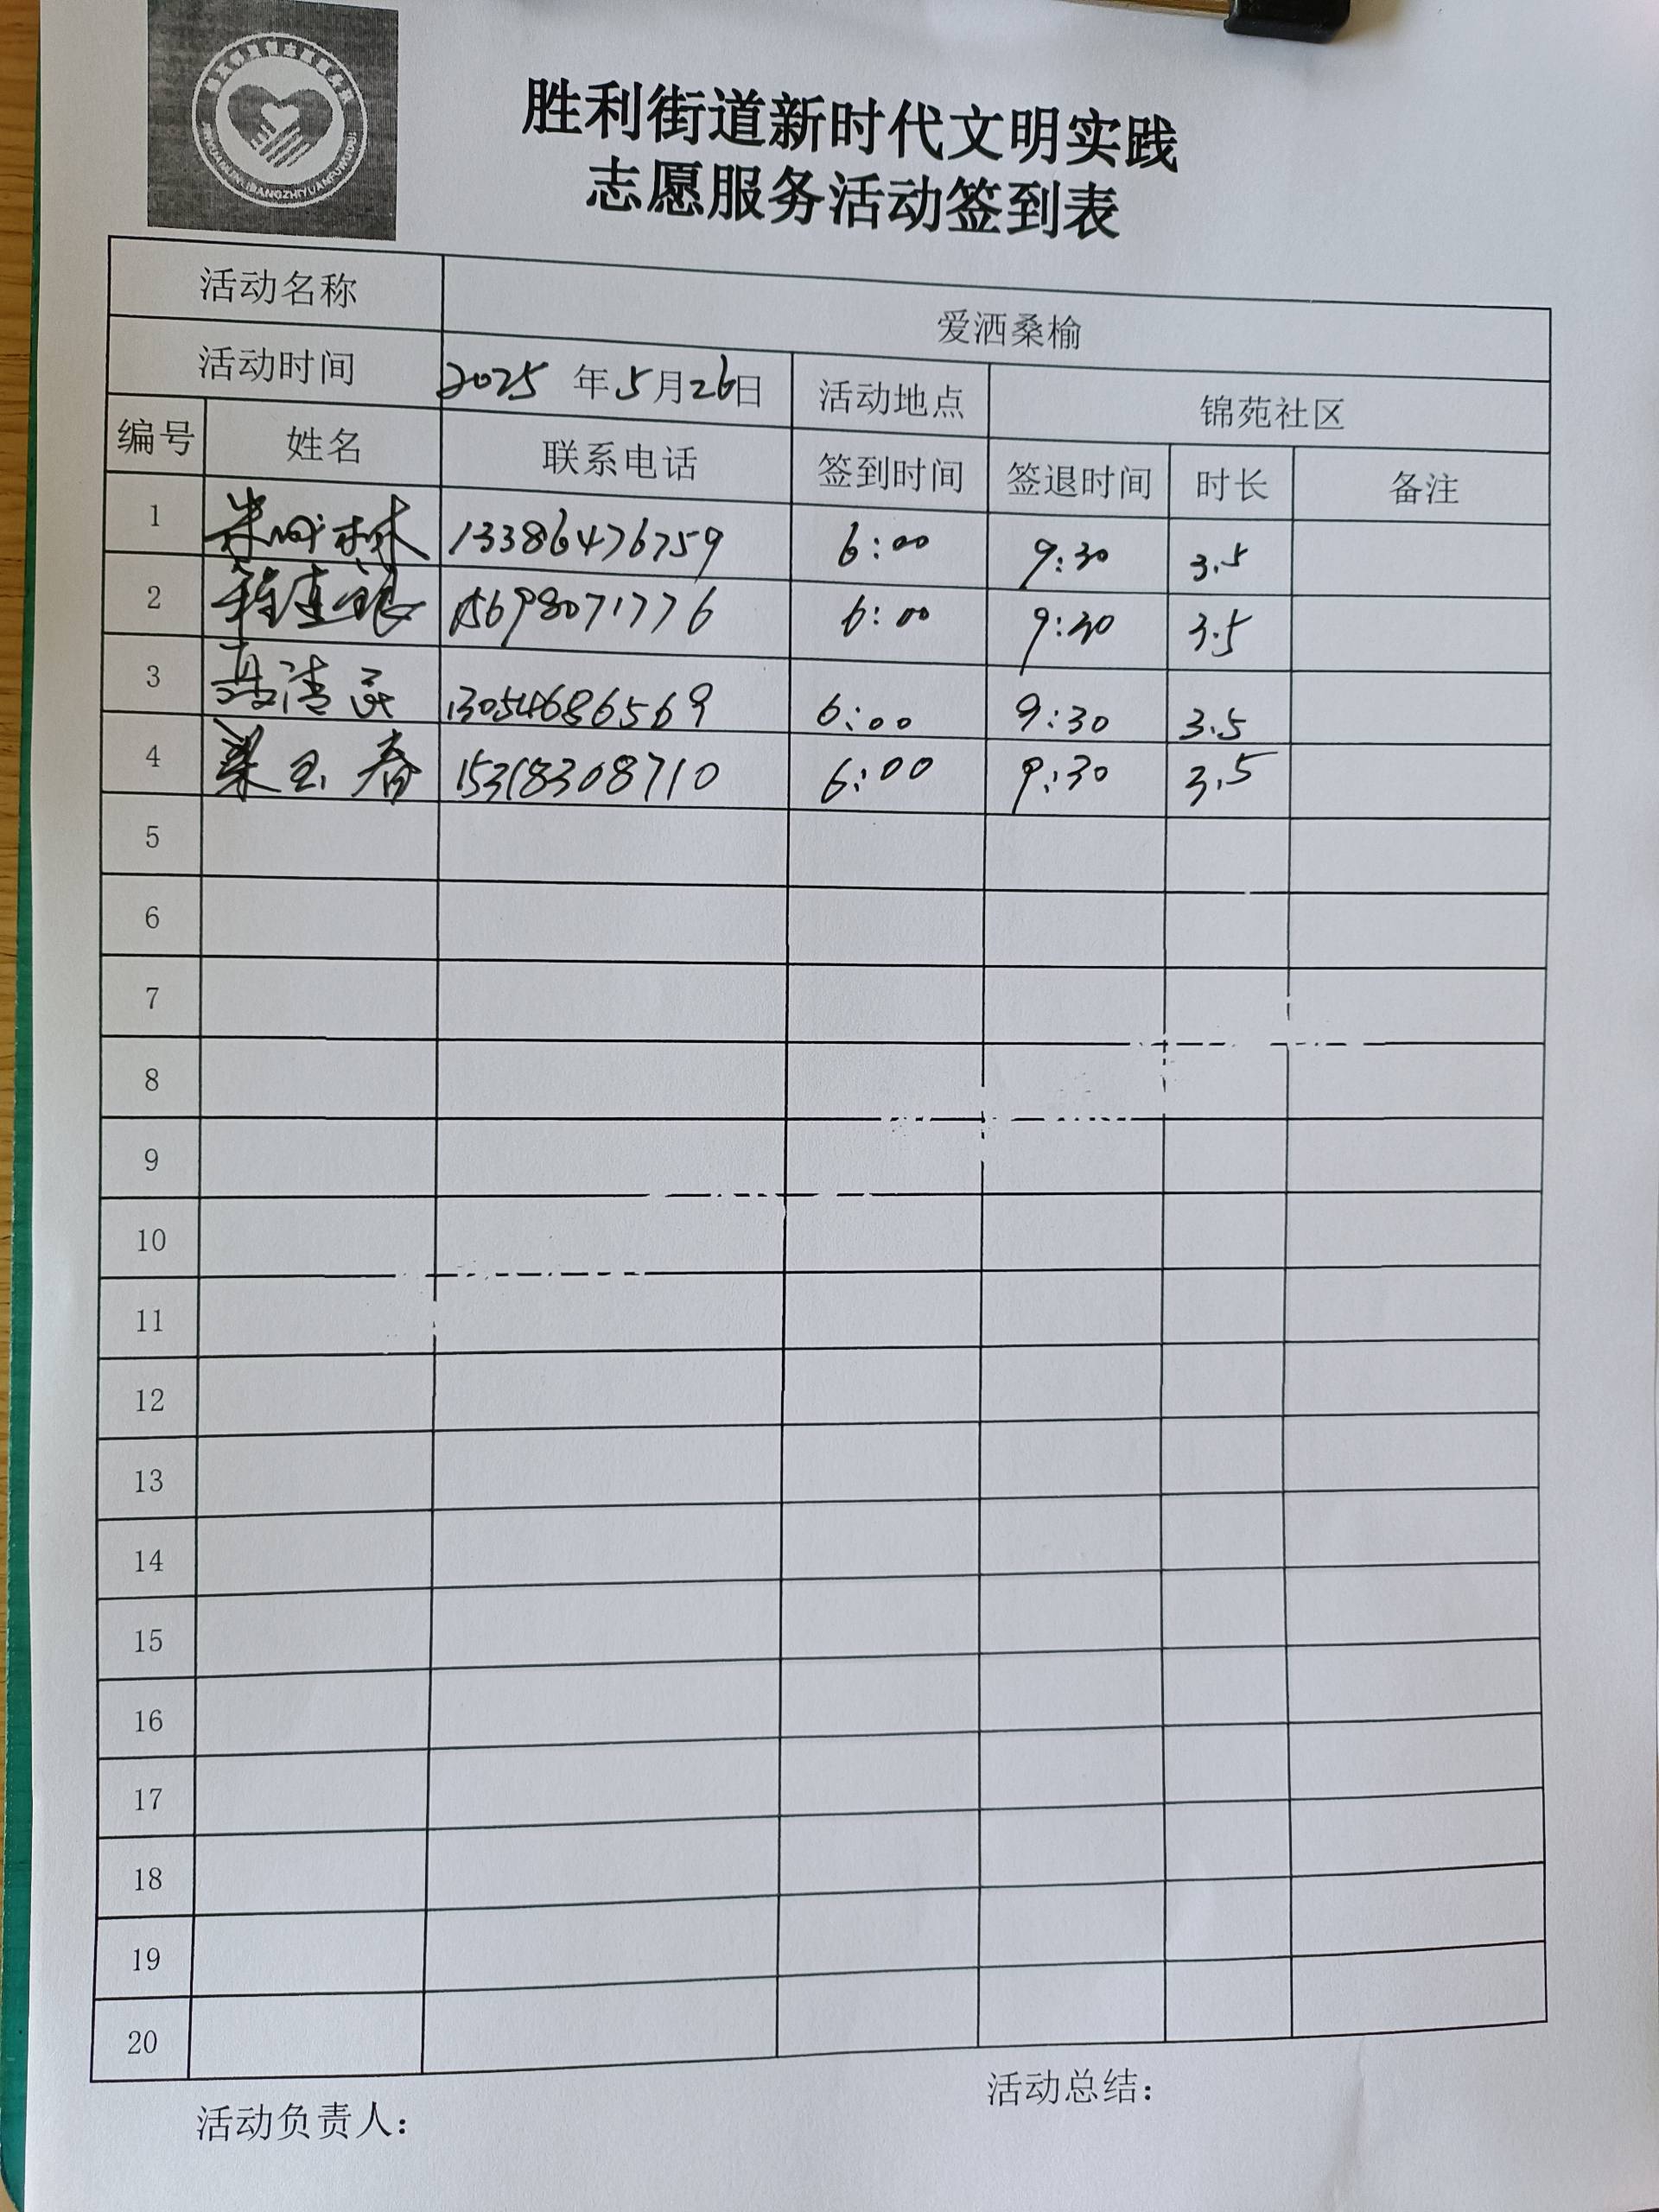 胜利街道新时代文明实践
志愿服务活动签到表
活动名称 爱洒桑榆
活动时间 2025 年 5 月 26 日 活动地点 锦苑社区
编号 姓名 联系电话 签到时间 签退时间 时长 备注
1 13386476759 6:00 9:30 3.5
2 15698071776 6:00 9:30 3.5
3 高清民 13054686569 6:00 9:30 3.5
4 梁玉春 15318308710 6:00 9:30 3.5
5
6
7
8
9
10
11
12
13
14
15
16
17
18
19
20
活动负责人： 活动总结：